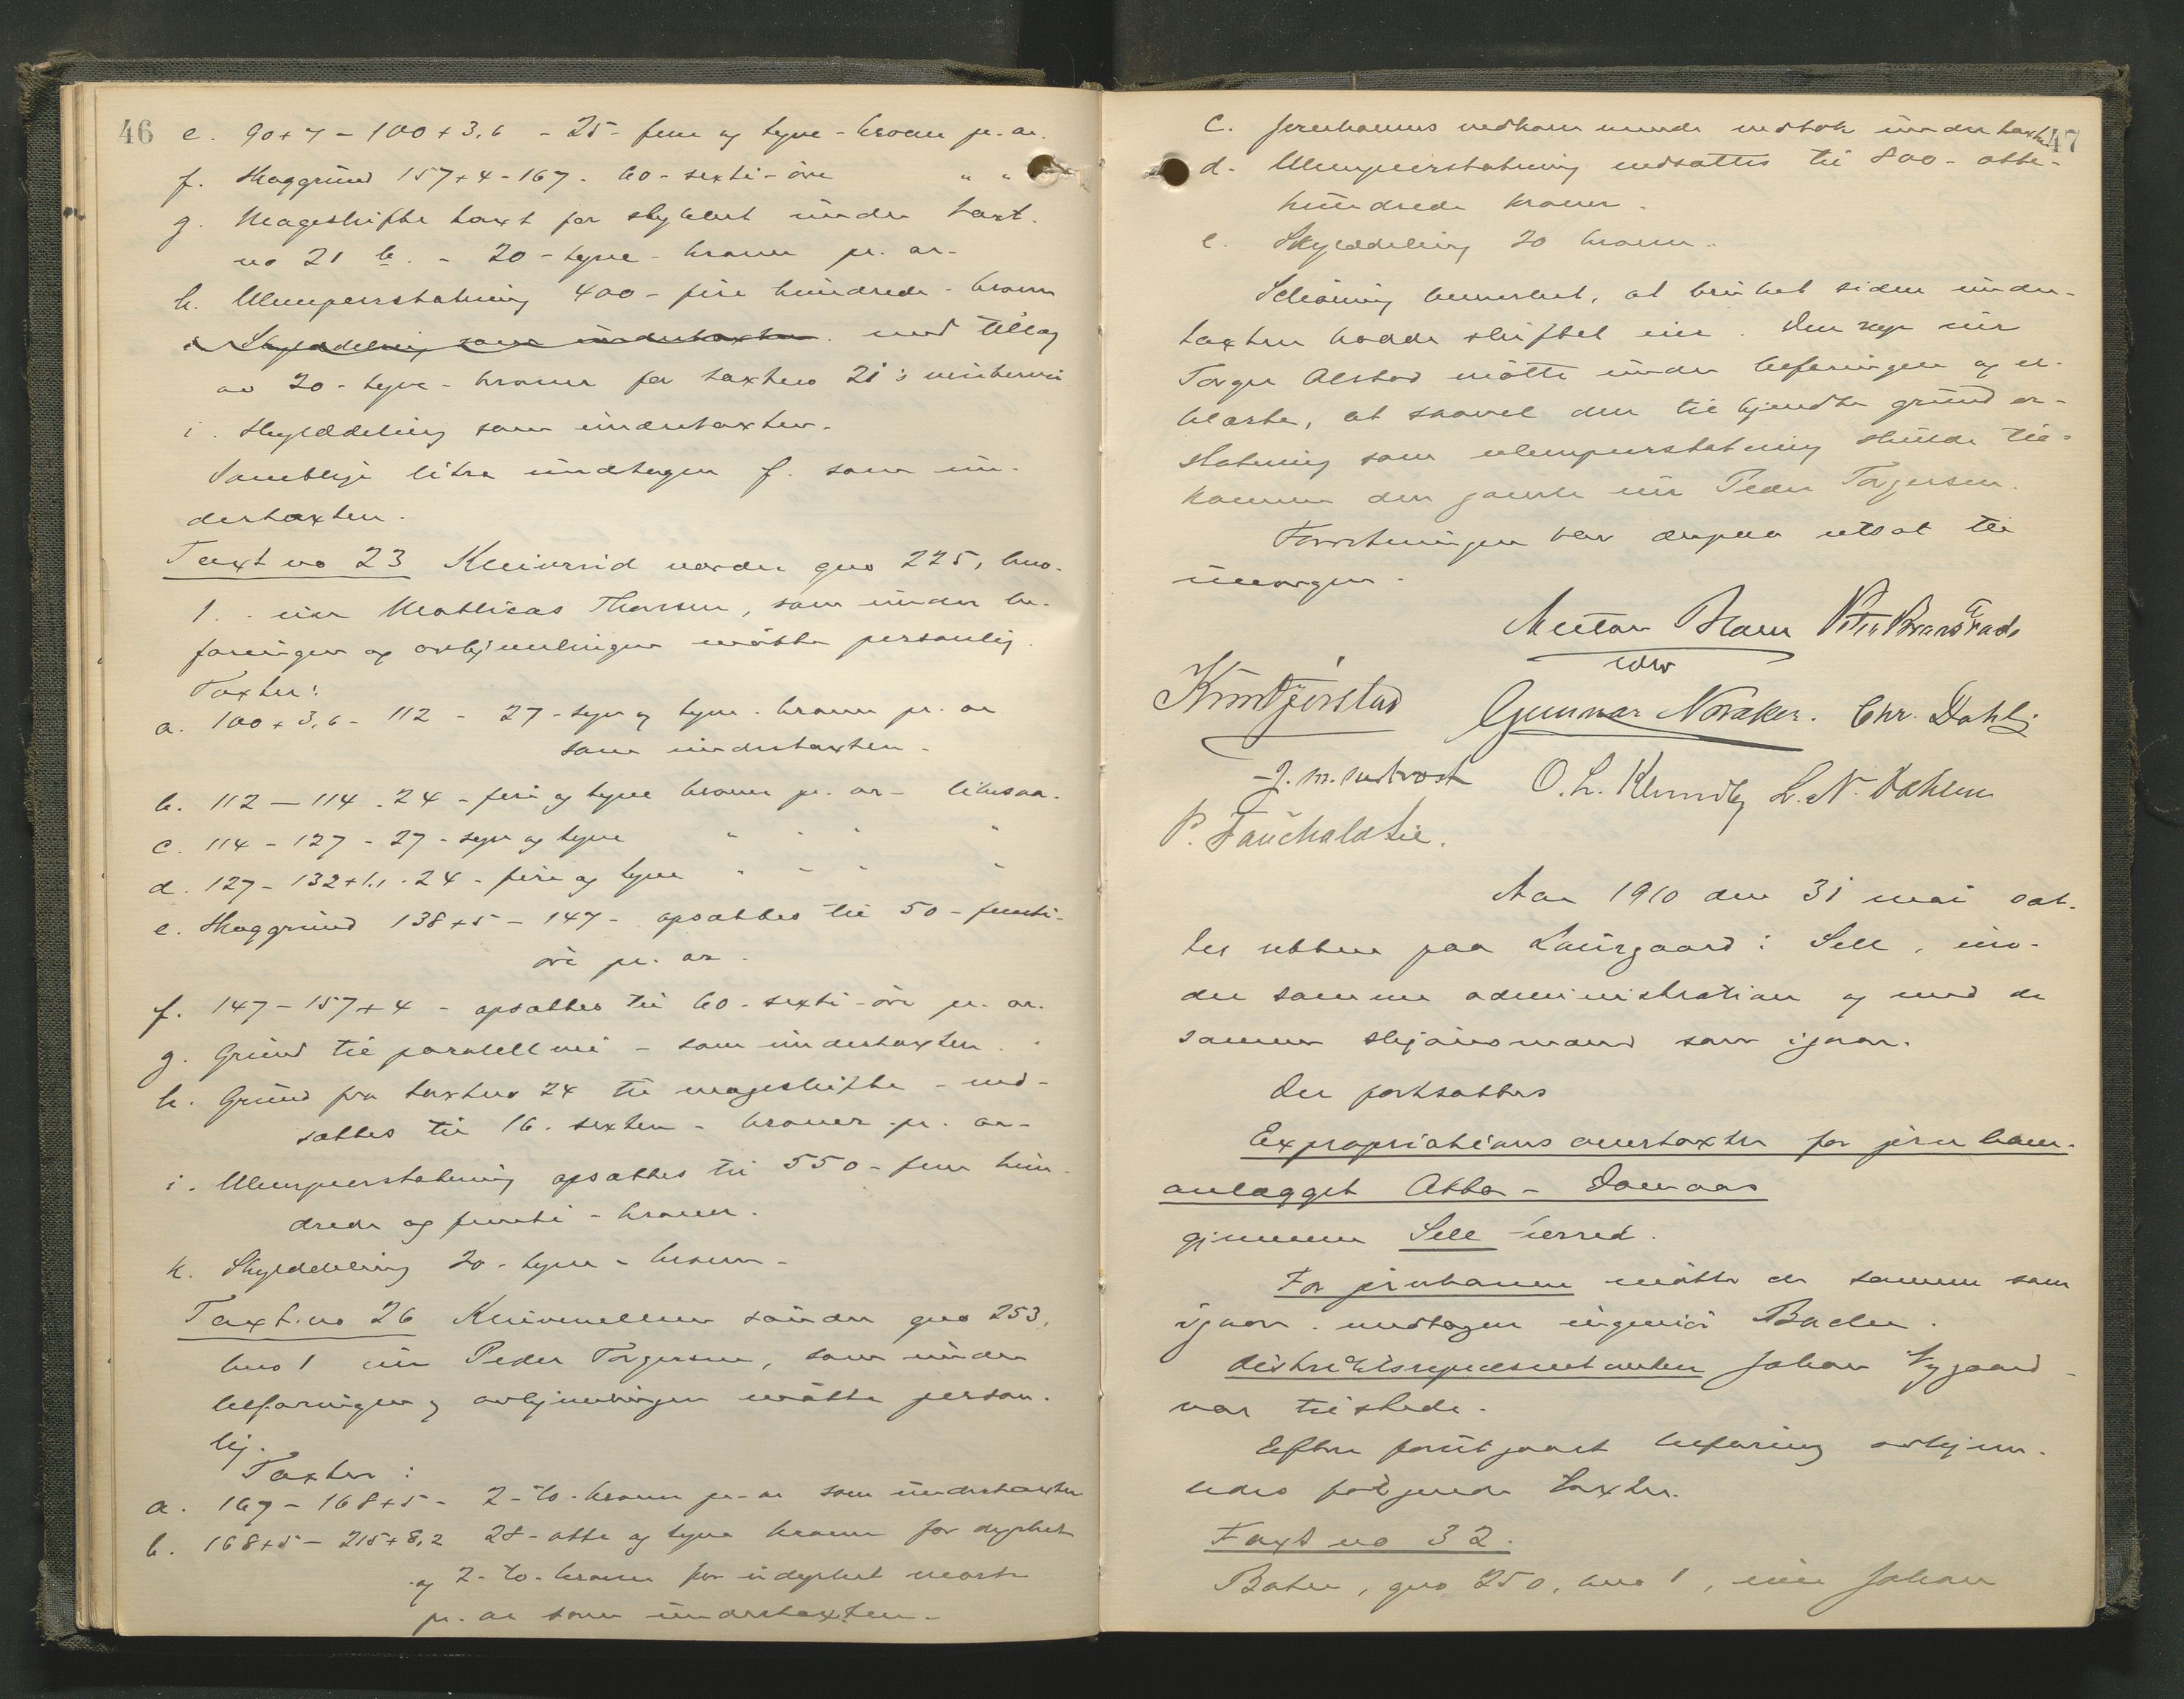 46
e. 90+7 - 100+3,6 - 25 - fem og tyve - kroner pr. ar.
f. Skoggrund 157+4 - 167 - 60 - sexti - øre " "
g. Mageskifte taxt for stykket under taxt.
no 21 b. - 20 - tyve - kroner pr. ar -
h. Ulempeerstatning 400 - fire hundrede - kroner
i Skylddeling som undertaxten. med tillæg
av 20 - tyve - kroner for taxtno 21's
i. Skylddeling som undertaxten.
Samtlige litra undtagen f. som un-
dertaxten.
Taxt no 23 nordre gno 225, bno.
1. eier Mathias Thorsen, som under be-
faringen og avhjemlingen møtte personlig.
Taxter:
a. 100+3,6 - 112 - 27 - syv og tyve - kroner pr. ar
som undertaxten -
b. 112 - 114 - 24 - fire og tyve kroner pr. ar - likesaa.
c. 114 - 127 - 27 - syv og tyve " " " "
d. 127 - 132+1,1 - 24 - fire og tyve " " " "
e. Skoggrund 138+5 - 147 - opsattes til 50 - femti-
øre pr. ar.
f. 147 - 157+4 - opsattes til 60 - sexti - øre pr. ar.
g. Grund til paralellvei - som undertaxten.
h. Grund fra taxtno 24 til mageskifte - ned-
sattes til 16 - sexten - kroner pr. ar -
i. Ulempeerstatning opsattes til 550 - fem hun-
drede og femti - kroner.
k. Skylddeling 20 - tyve - kroner -
Taxt. no 26 søndre gno 253,
bno 1 eier Peder Torgersen, som under
befaringen og avhjemlingen møtte person-
lig.
Taxter:
a. 167 - 168+5 - 2 - to - kroner pr. ar som undertaxten
b. 168+5 - 215+8,2 28 - otte og tyve kroner for dyrket
og 2 - to - kroner for udyrket mark
pr. ar som undertaxten -
47
c. Jernbanens vedkommende vedtok undertaxten
d. Ulempeerstatning nedsattes til 800 - otte-
hundrede kroner.
e. Skylddeling 20 kroner.
bemerket, at bruket siden under-
taxten hadde skiftet eier. Den nye eier
Torger Alstad møtte under befaringen og er-
klærte, at saavel den tilkjendte grunder-
statning som ulempeerstatning skulde til-
komme den gamle eier Peder Torgersen.
Forretningen blev derpaa utsat til
imorgen.
Gunnar Noraker. Chr. Dahli
O. L. L. N. Dahlen
P.
Aar 1910 den 31 mai sat-
tes retten paa Laurgaard i Sell, un-
der samme administration og med de
samme skjønsmænd som igaar.
Der fortsattes
Expropriations overtaxten for jernbane-
anlægget Otta - Domaas
gjennem Sell herred.
For jernbanen møtte de samme som
igaar. undtagen ingeniør Bache.
Distriktsrepræsentanten Johan Nygaard
var tilstede.
Efter forutgaaet befaring avhjem-
ledes følgende taxter.
Taxt no 32.
gno 250, bno 1, eier Johan